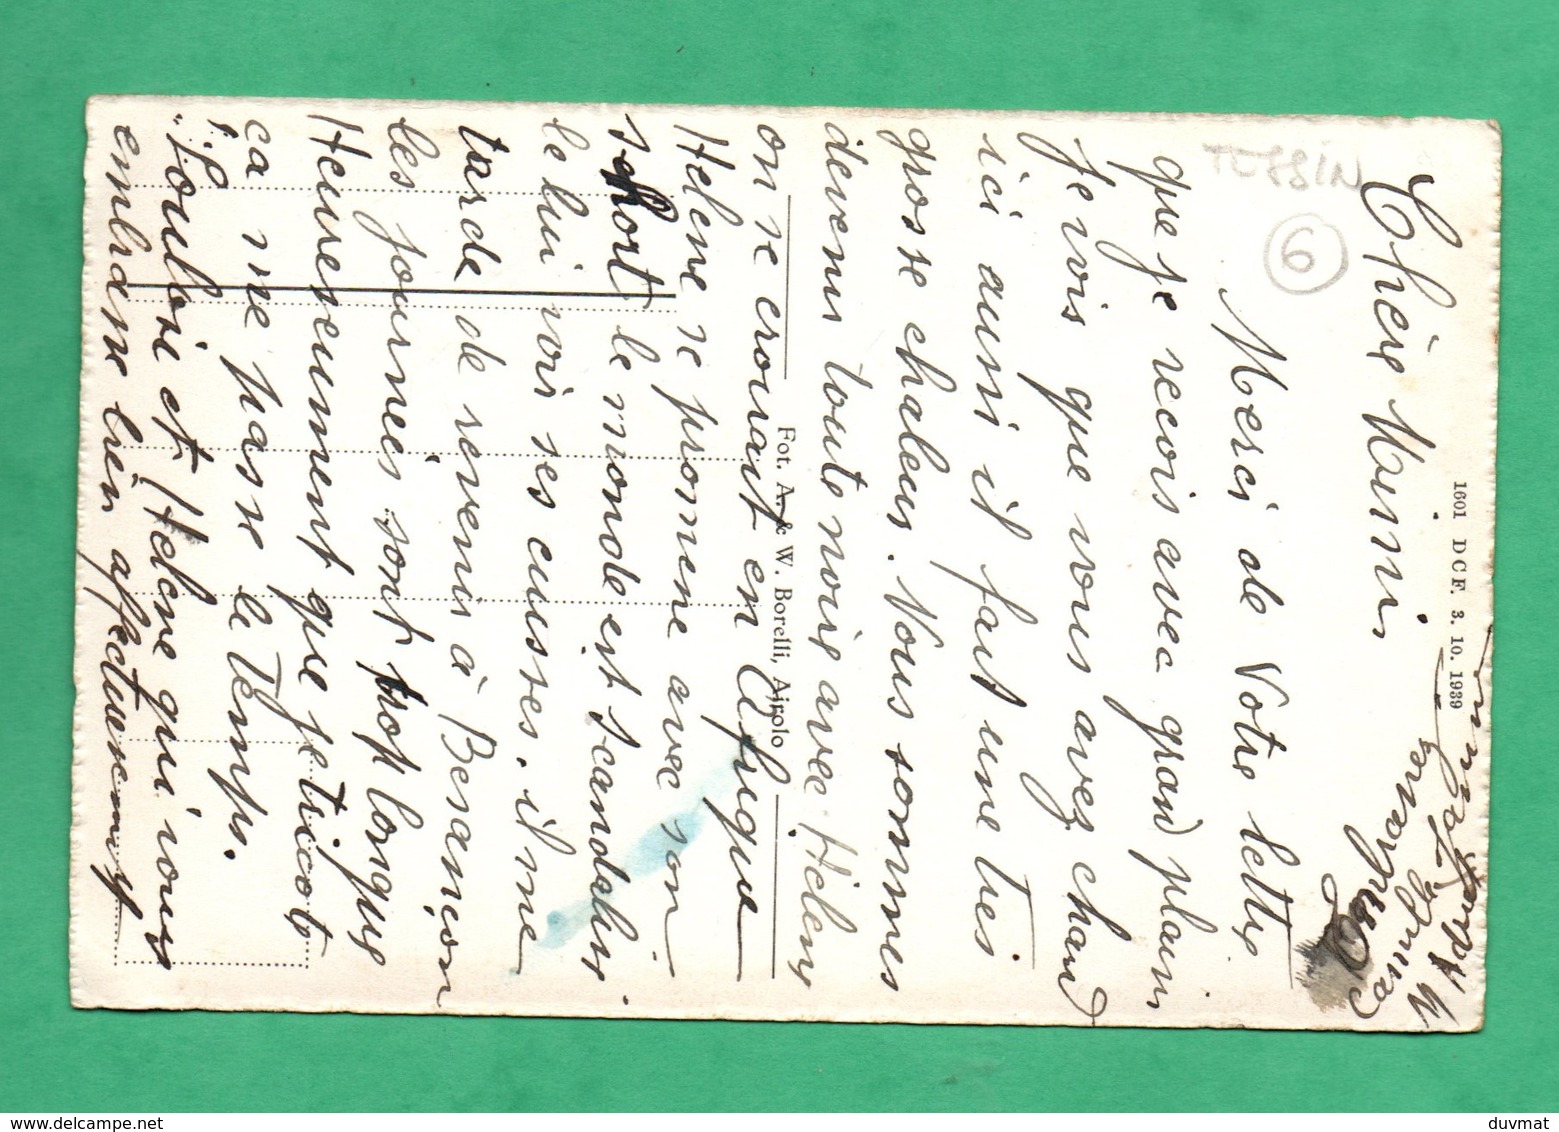 Chère Mimi
Merci de Votre lettre
que je recois avec grand plaisir
Je vois que vous avez chaud
ici aussi il fait une tres
grosse chaleur. Nous sommes
devenu toute noir avec Helene
on se croirait en Afrique
Helene se promene avec son
short le monde est scandalisé
de lui voir ses cuisses. il me
tarde de revenir à Besançon
les journées sont trop longues
Heureusement que je tricot
ça me passe le Temps.
Loulou et Helene qui vous
embrasse bien affectueusement
Embrassez
Camille
1601 D C F. 3. 10. 1939
Fot. A. & W. Borelli, Airolo
TESSIN
6
duvmat